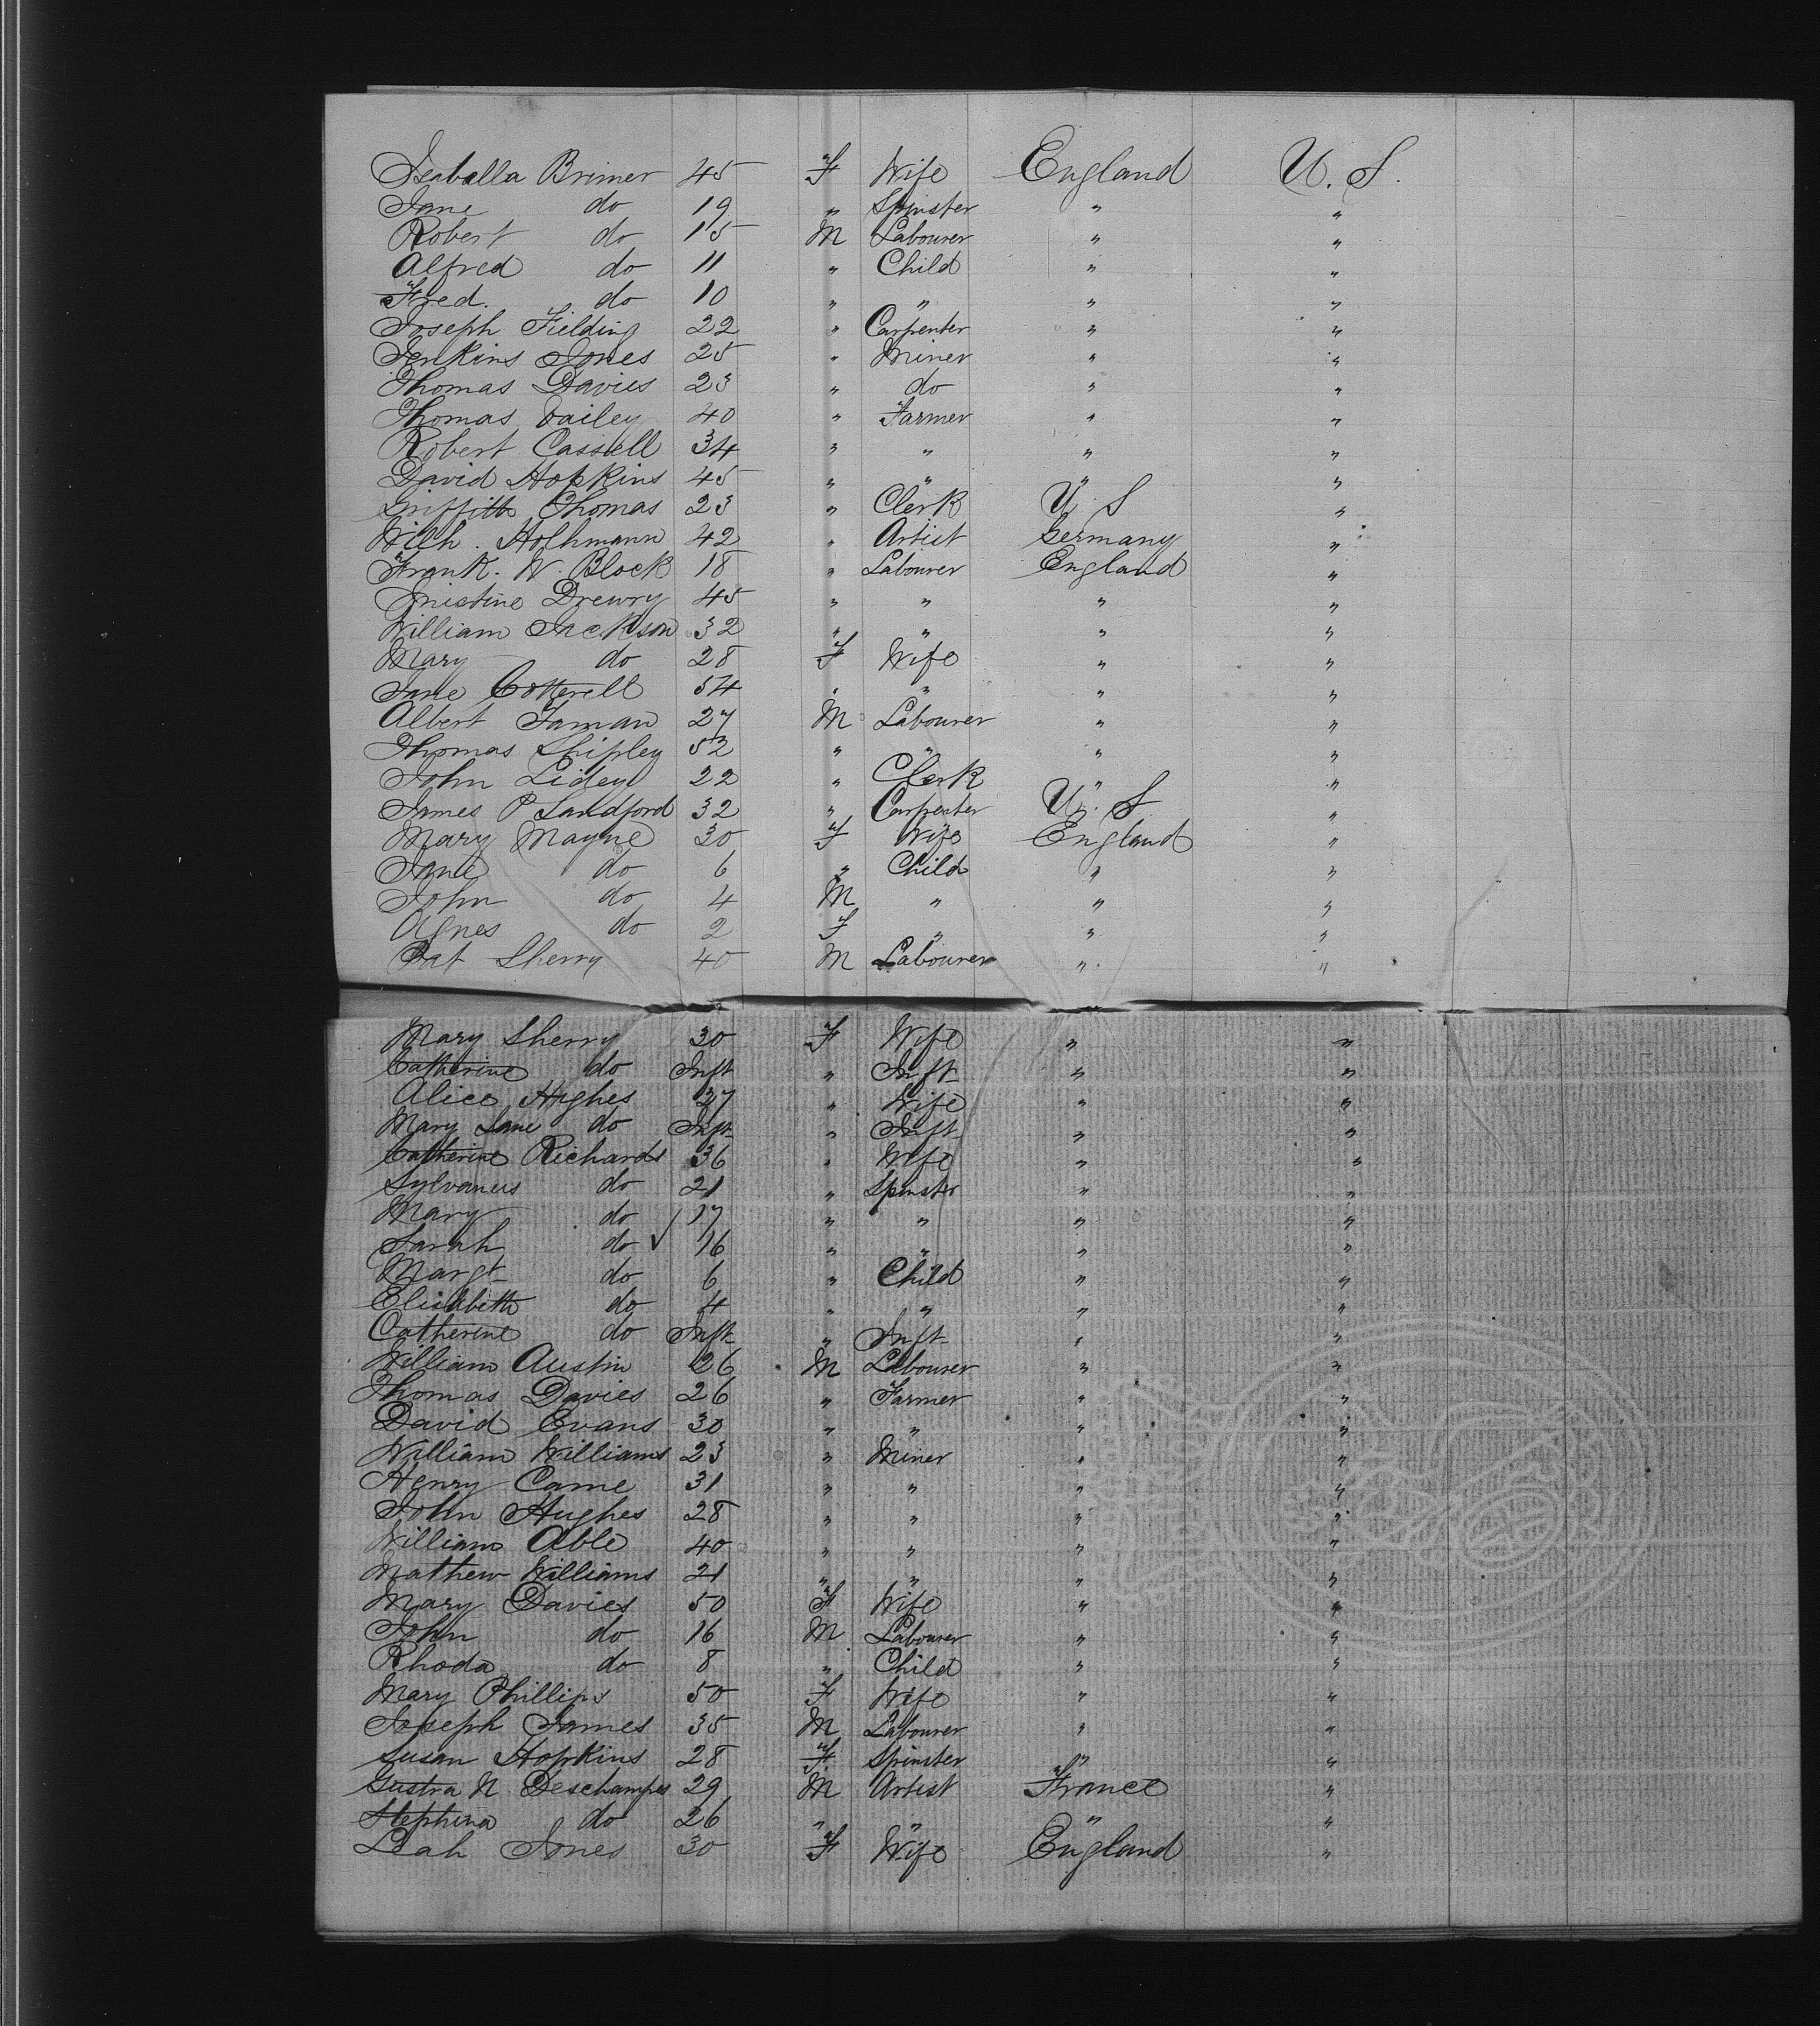 Isabella Brimer 45 F Wife England U. S.
Jane do 19 " Spinster " "
Robert do 15 M Labourer " "
Alfred do 11 " Child " "
Fred. do 10 " " " "
Joseph Fielding 22 " Carpenter " "
Jenkins Jones 25 " Miner " "
Thomas Davies 23 " do " "
Thomas Dailey 40 " Farmer " "
Robert Cassell 34 " " " "
David Hopkins 45 " " " "
Griffith Thomas 23 " Clerk U. S "
Wilh. Holhmann 42 " Artist Germany "
Frank. W. Block 18 " Labourer England "
Drewry 45 " " " "
William Jackson 32 " " " "
Mary do 28 F Wife " "
Jane Cotterell 54 " " " "
Albert Jaman 27 M Labourer " "
Thomas Shipley 52 " " " "
John Lidey 22 " Clerk " "
James P Sandford 32 " Carpenter U. S "
Mary Mayne 30 F Wife England "
Jane do 6 " Child " "
John do 4 M " " "
Agnes do 2 F " " "
Pat Sherry 40 M Labourer " "
Mary Sherry 30 F Wife " "
Catherine do Inft " Inft " "
Alice Hughes 27 " Wife " "
Mary Jane do Inft " Inft " "
Catherine Richards 36 " Wife " "
Sylvanus do 21 " Spinster " "
Mary do 17 " " " "
Sarah do ✓ 16 " " " "
Margt do 6 " Child " "
Elisabeth do 4 " " " "
Catherine do Inft " Inft " "
William Austin 26 M Labourer " "
Thomas Davies 26 " Farmer " "
David Evans 30 " " " "
William Williams 23 " Miner " "
Henry Came 31 " " " "
John Hughes 28 " " " "
William Able 40 " " " "
Mathew Williams 21 " " " "
Mary Davies 50 F Wife " "
John do 16 M Labourer " "
Rhoda do 8 " Child " "
Mary Phillips 50 F Wife " "
Joseph James 35 M Labourer " "
Susan Hopkins 28 F. Spinster " "
Gustra N. Deschamps 29 M Artist France "
Stephina do 26 " " " "
Leah Jones 30 F Wife England "